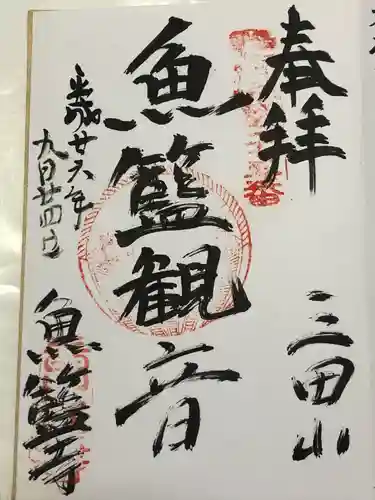 奉拝
三田山
魚籃観音
平成廿六年
九月廿四日
魚籃寺